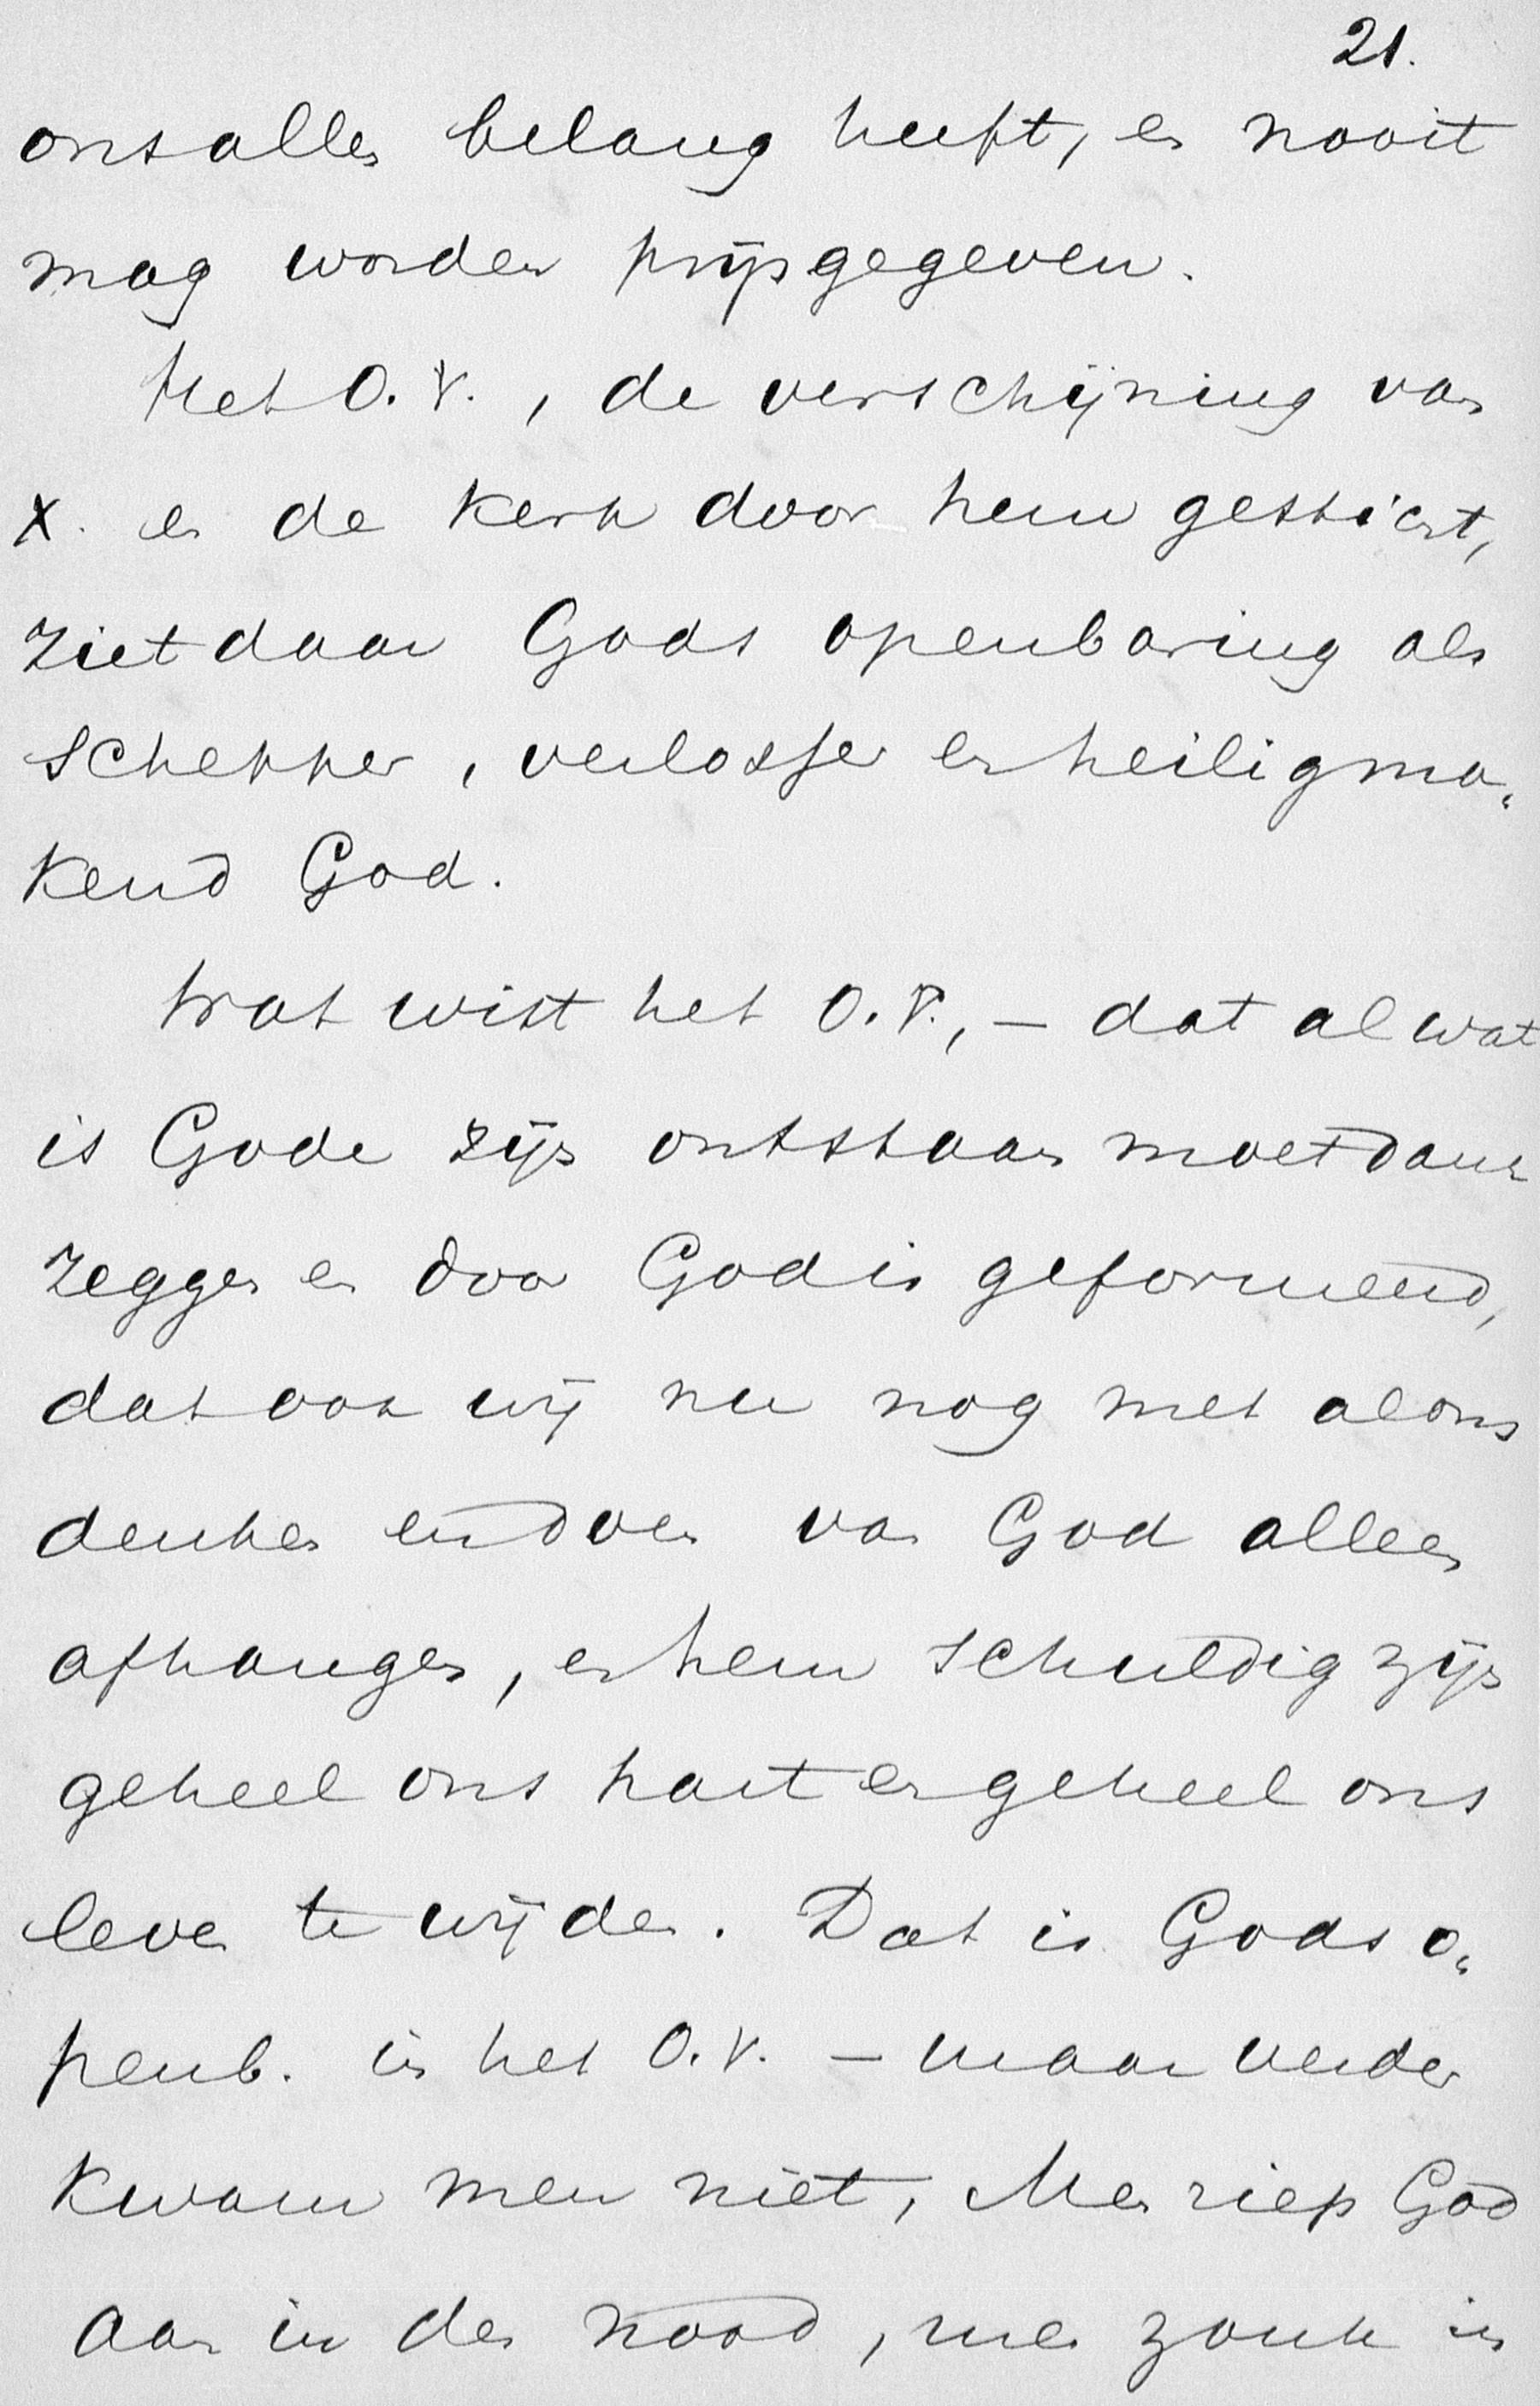 21.
ons alles belang heeft, en nooit
mag worden prijsgegeven.
Het O.V., de verschijning van
X. en de kerk door hem gesticht,
ziet daar Gods openbaring als
schepper, verlosser en heiligma„
kend God.
Wat wist het O.V., – dat al wat
is Gode zijn ontstaan moet dank
zeggen en door God is geformeerd,
dat ook wij nu nog met al ons
denken en doen van God alleen
afhangen, en hem schuldig zijn
geheel ons hart en geheel ons
leven te wijden. Dat is Gods o„
penb. in het O.V. – maar verder
kwam men niet, Men riep God
aan in den nood, men zonk in